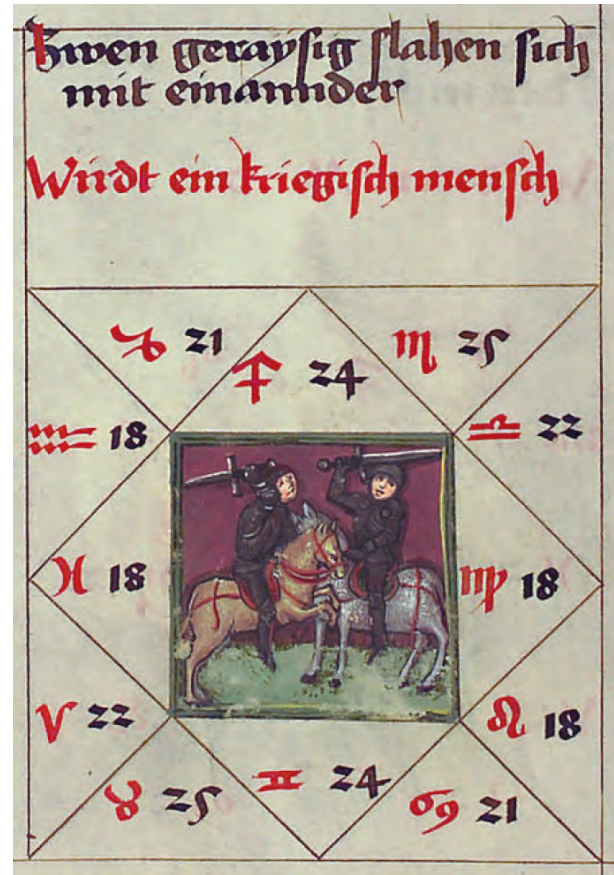 Zwen geraysig slahen sich
mit einannder
Wirdt ein kriegisch mensch
♑ 21
♐ 24
♏ 25
♒ 18
♎ 22
♓ 18
♍ 18
♈ 22
♌ 18
♉ 25
♊ 24
♋ 21